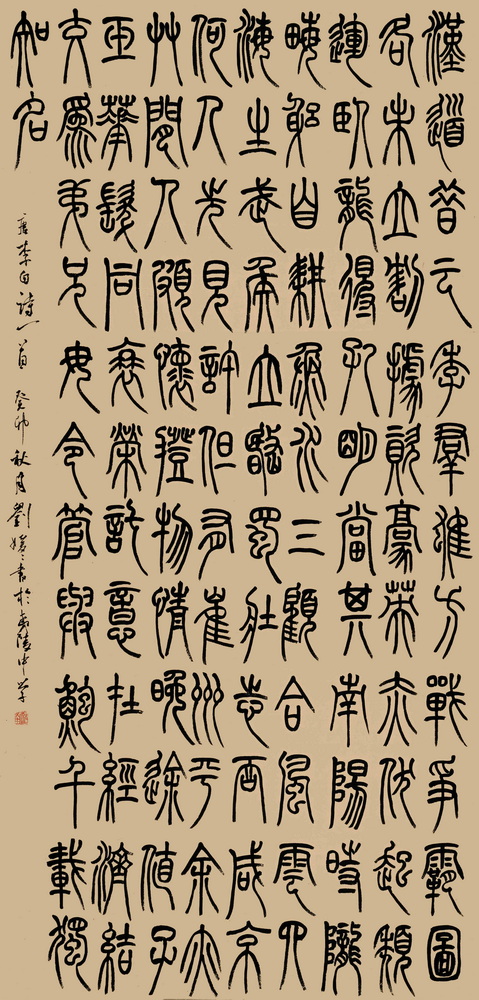 漢道昔云季羣雄方戰爭霸圖
各未立割據資豪英赤伏起頹
運臥龍得孔明當其南陽時隴
畮躬自耕魚水三顧合風雲四
海生武侯立岷蜀壯志吞咸京
何人先見許但有崔州平余亦
艸間人頗懷拯物情晚途值子
玉華髮同衰榮託意在經濟結
交為弟兄毋令管與鮑千載獨
知名
唐李白詩一首 癸卯秋月劉媛々書於夷陵中學